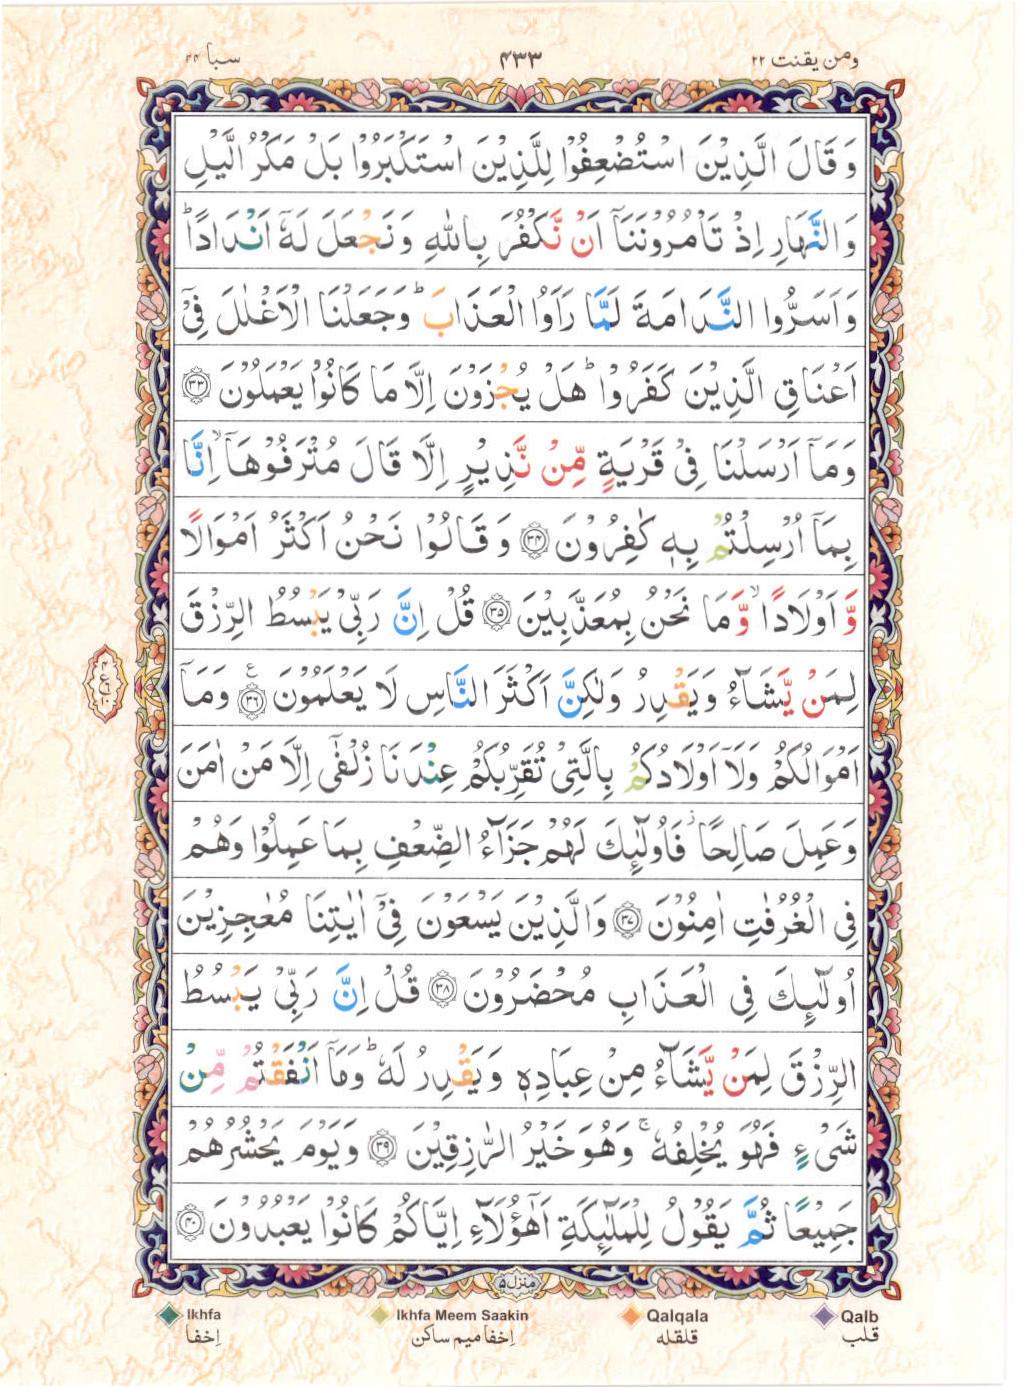 ومن یقنت ۲۲
۴۳۳
سبا ۳۴
وَ قَالَ الَّذِیْنَ اسْتُضْعِفُوْا لِلَّذِیْنَ اسْتَكْبَرُوْا بَلْ مَكْرُ الَّیْلِ
وَالنَّهَارِ اِذْ تَاْمُرُوْنَنَاۤ اَنْ نَّكْفُرَ بِاللّٰهِ وَ نَجْعَلَ لَهٗۤ اَنْدَادًاؕ
وَ اَسَرُّوا النَّدَامَةَ لَمَّا رَاَوُا الْعَذَابَؕ وَ جَعَلْنَا الْاَغْلٰلَ فِیْۤ
اَعْنَاقِ الَّذِیْنَ كَفَرُوْاؕ هَلْ یُجْزَوْنَ اِلَّا مَا كَانُوْا یَعْمَلُوْنَ ۝۳۳
وَ مَاۤ اَرْسَلْنَا فِیْ قَرْیَةٍ مِّنْ نَّذِیْرٍ اِلَّا قَالَ مُتْرَفُوْهَاۤۙ اِنَّا
بِمَاۤ اُرْسِلْتُمْ بِهٖ كٰفِرُوْنَ ۝۳۴ وَ قَالُوْا نَحْنُ اَكْثَرُ اَمْوَالًا
وَّ اَوْلَادًاۙ وَّ مَا نَحْنُ بِمُعَذَّبِیْنَ ۝۳۵ قُلْ اِنَّ رَبِّیْ یَبْسُطُ الرِّزْقَ
لِمَنْ یَّشَآءُ وَ یَقْدِرُ وَ لٰكِنَّ اَكْثَرَ النَّاسِ لَا یَعْلَمُوْنَ ۝۳۶ ع وَ مَاۤ
اَمْوَالُكُمْ وَ لَاۤ اَوْلَادُكُمْ بِالَّتِیْ تُقَرِّبُكُمْ عِنْدَنَا زُلْفٰۤی اِلَّا مَنْ اٰمَنَ
وَ عَمِلَ صَالِحًا٘ فَاُولٰٓىِٕكَ لَهُمْ جَزَآءُ الضِّعْفِ بِمَا عَمِلُوْا وَ هُمْ
فِی الْغُرُفٰتِ اٰمِنُوْنَ ۝۳۷ وَ الَّذِیْنَ یَسْعَوْنَ فِیْۤ اٰیٰتِنَا مُعٰجِزِیْنَ
اُولٰٓىِٕكَ فِی الْعَذَابِ مُحْضَرُوْنَ ۝۳۸ قُلْ اِنَّ رَبِّیْ یَبْسُطُ
الرِّزْقَ لِمَنْ یَّشَآءُ مِنْ عِبَادِهٖ وَ یَقْدِرُ لَهٗؕ وَ مَاۤ اَنْفَقْتُمْ مِّنْ
شَیْءٍ فَهُوَ یُخْلِفُهٗۚ وَ هُوَ خَیْرُ الرّٰزِقِیْنَ ۝۳۹ وَ یَوْمَ یَحْشُرُهُمْ
جَمِیْعًا ثُمَّ یَقُوْلُ لِلْمَلٰٓىِٕكَةِ اَهٰۤؤُلَآءِ اِیَّاكُمْ كَانُوْا یَعْبُدُوْنَ ۝۴۰
منزل ۵
Ikhfa Ikhfa Meem Saakin Qalqala Qalb
اِخفا اِخفا میم ساکن قلقله قلب